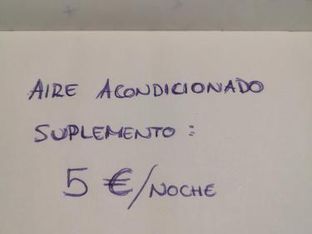 AIRE ACONDICIONADO
SUPLEMENTO :
5 €/NOCHE